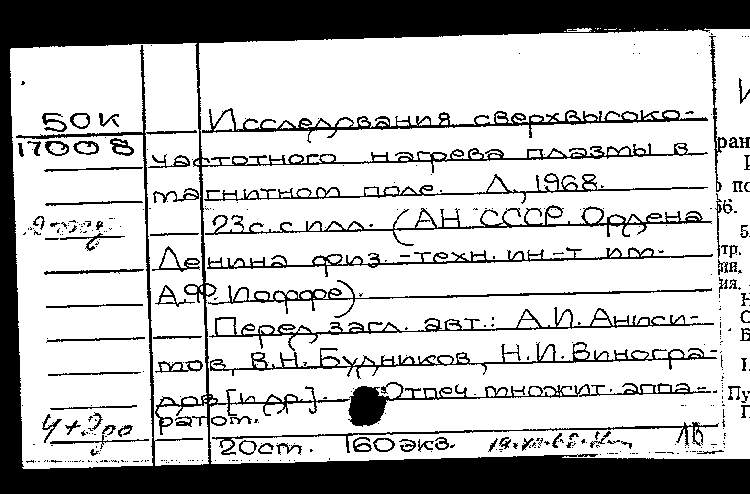 50К
17008
Исследования сверхвысоко-
частотного нагрева плазмы в
магнитном поле. Л., 1968.
23с. с илл. (АН СССР. Ордена
Ленина физ.-техн. ин-т им.
А.Ф. Иоффе).
Перед загл. авт.: А.И. Аниси-
мов, В.Н. Будников, Н.И. Виногра-
дов [и др.]. Отпеч. множит. аппа-
ратом.
4+2до
20ст. 160экз. 1Б